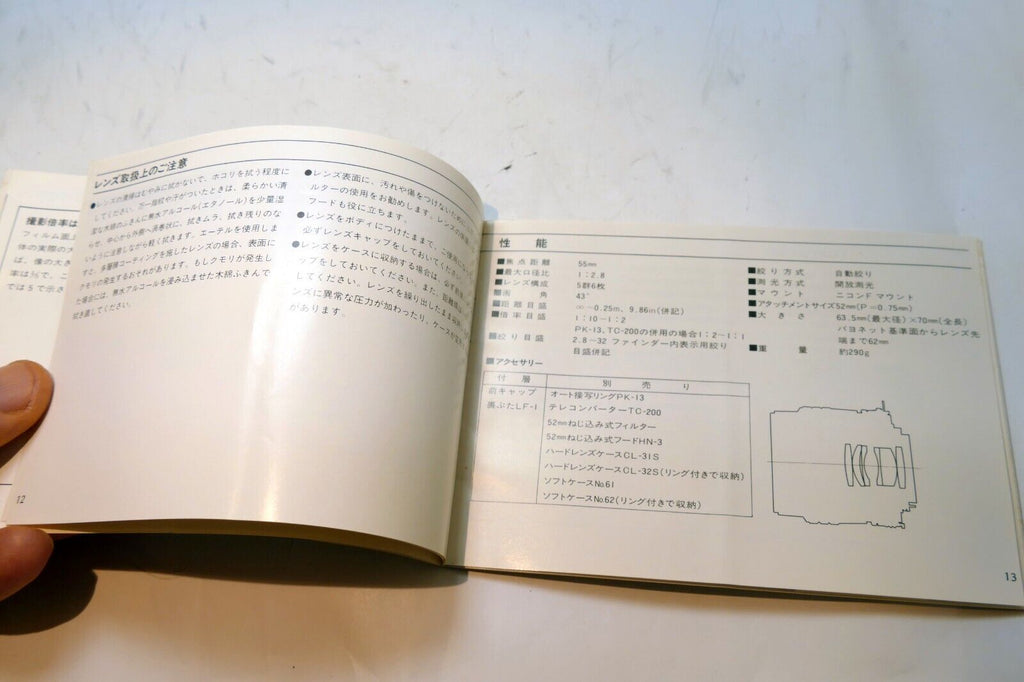 撮影倍率は
フィルム面上
体の実際の大
ば、像の大き
では5で示さ
レンズ取扱上のご注意
●レンズの清掃はむやみに拭かないで、ホコリを拭う程度に
してください。万一指紋や汗がついたときは、柔らかい清
潔な木綿のふきんに無水アルコール(エタノール)を少量湿
らせ、中心から外側へ渦巻状に、拭きムラ、拭き残りのな
いように注意しながら軽く拭きます。エーテルを使用しま
すと、多層膜コーティングを施したレンズの場合、表面に
クモリが発生するおそれがあります。もしクモリが発生し
た場合には、無水アルコールを浸み込ませた木綿ふきんで
拭き直してください。
●レンズ表面に、汚れや傷をつけないために
ルターの使用をお勧めします。レンズの保護
フードも役に立ちます。
●レンズをボディにつけたままで、ご使用に
必ずレンズキャップをしておいてください。
●レンズをケースに収納する場合は、必ず前後
ップをしておいてください。また、距離環は
してください。レンズを繰り出したまま
ンズに異常な圧力が加わったり、ケースが
があります。
12
性 能
■焦点距離 55mm
■最大口径比 1:2.8
■レンズ構成 5群6枚
■画角 43°
■距離目盛 ∞〜0.25m、9.86in(併記)
■倍率目盛 1:10〜1:2
PK-13、TC-200の併用の場合1:2〜1:1
■絞り目盛 2.8〜32 ファインダー内表示用絞り
目盛併記
■絞り方式 自動絞り
■測光方式 開放測光
■マウント ニコンFマウント
■アタッチメントサイズ 52mm(P=0.75mm)
■大きさ 63.5mm(最大径)×70mm(全長)
バヨネット基準面からレンズ先
端まで62mm
■重量 約290g
■アクセサリー
付属 別売り
前キャップ オート接写リングPK-13
裏ぶたLF-1 テレコンバーターTC-200
52mmねじ込み式フィルター
52mmねじ込み式フードHN-3
ハードレンズケースCL-31S
ハードレンズケースCL-32S(リング付きで収納)
ソフトケースNo.61
ソフトケースNo.62(リング付きで収納)
13